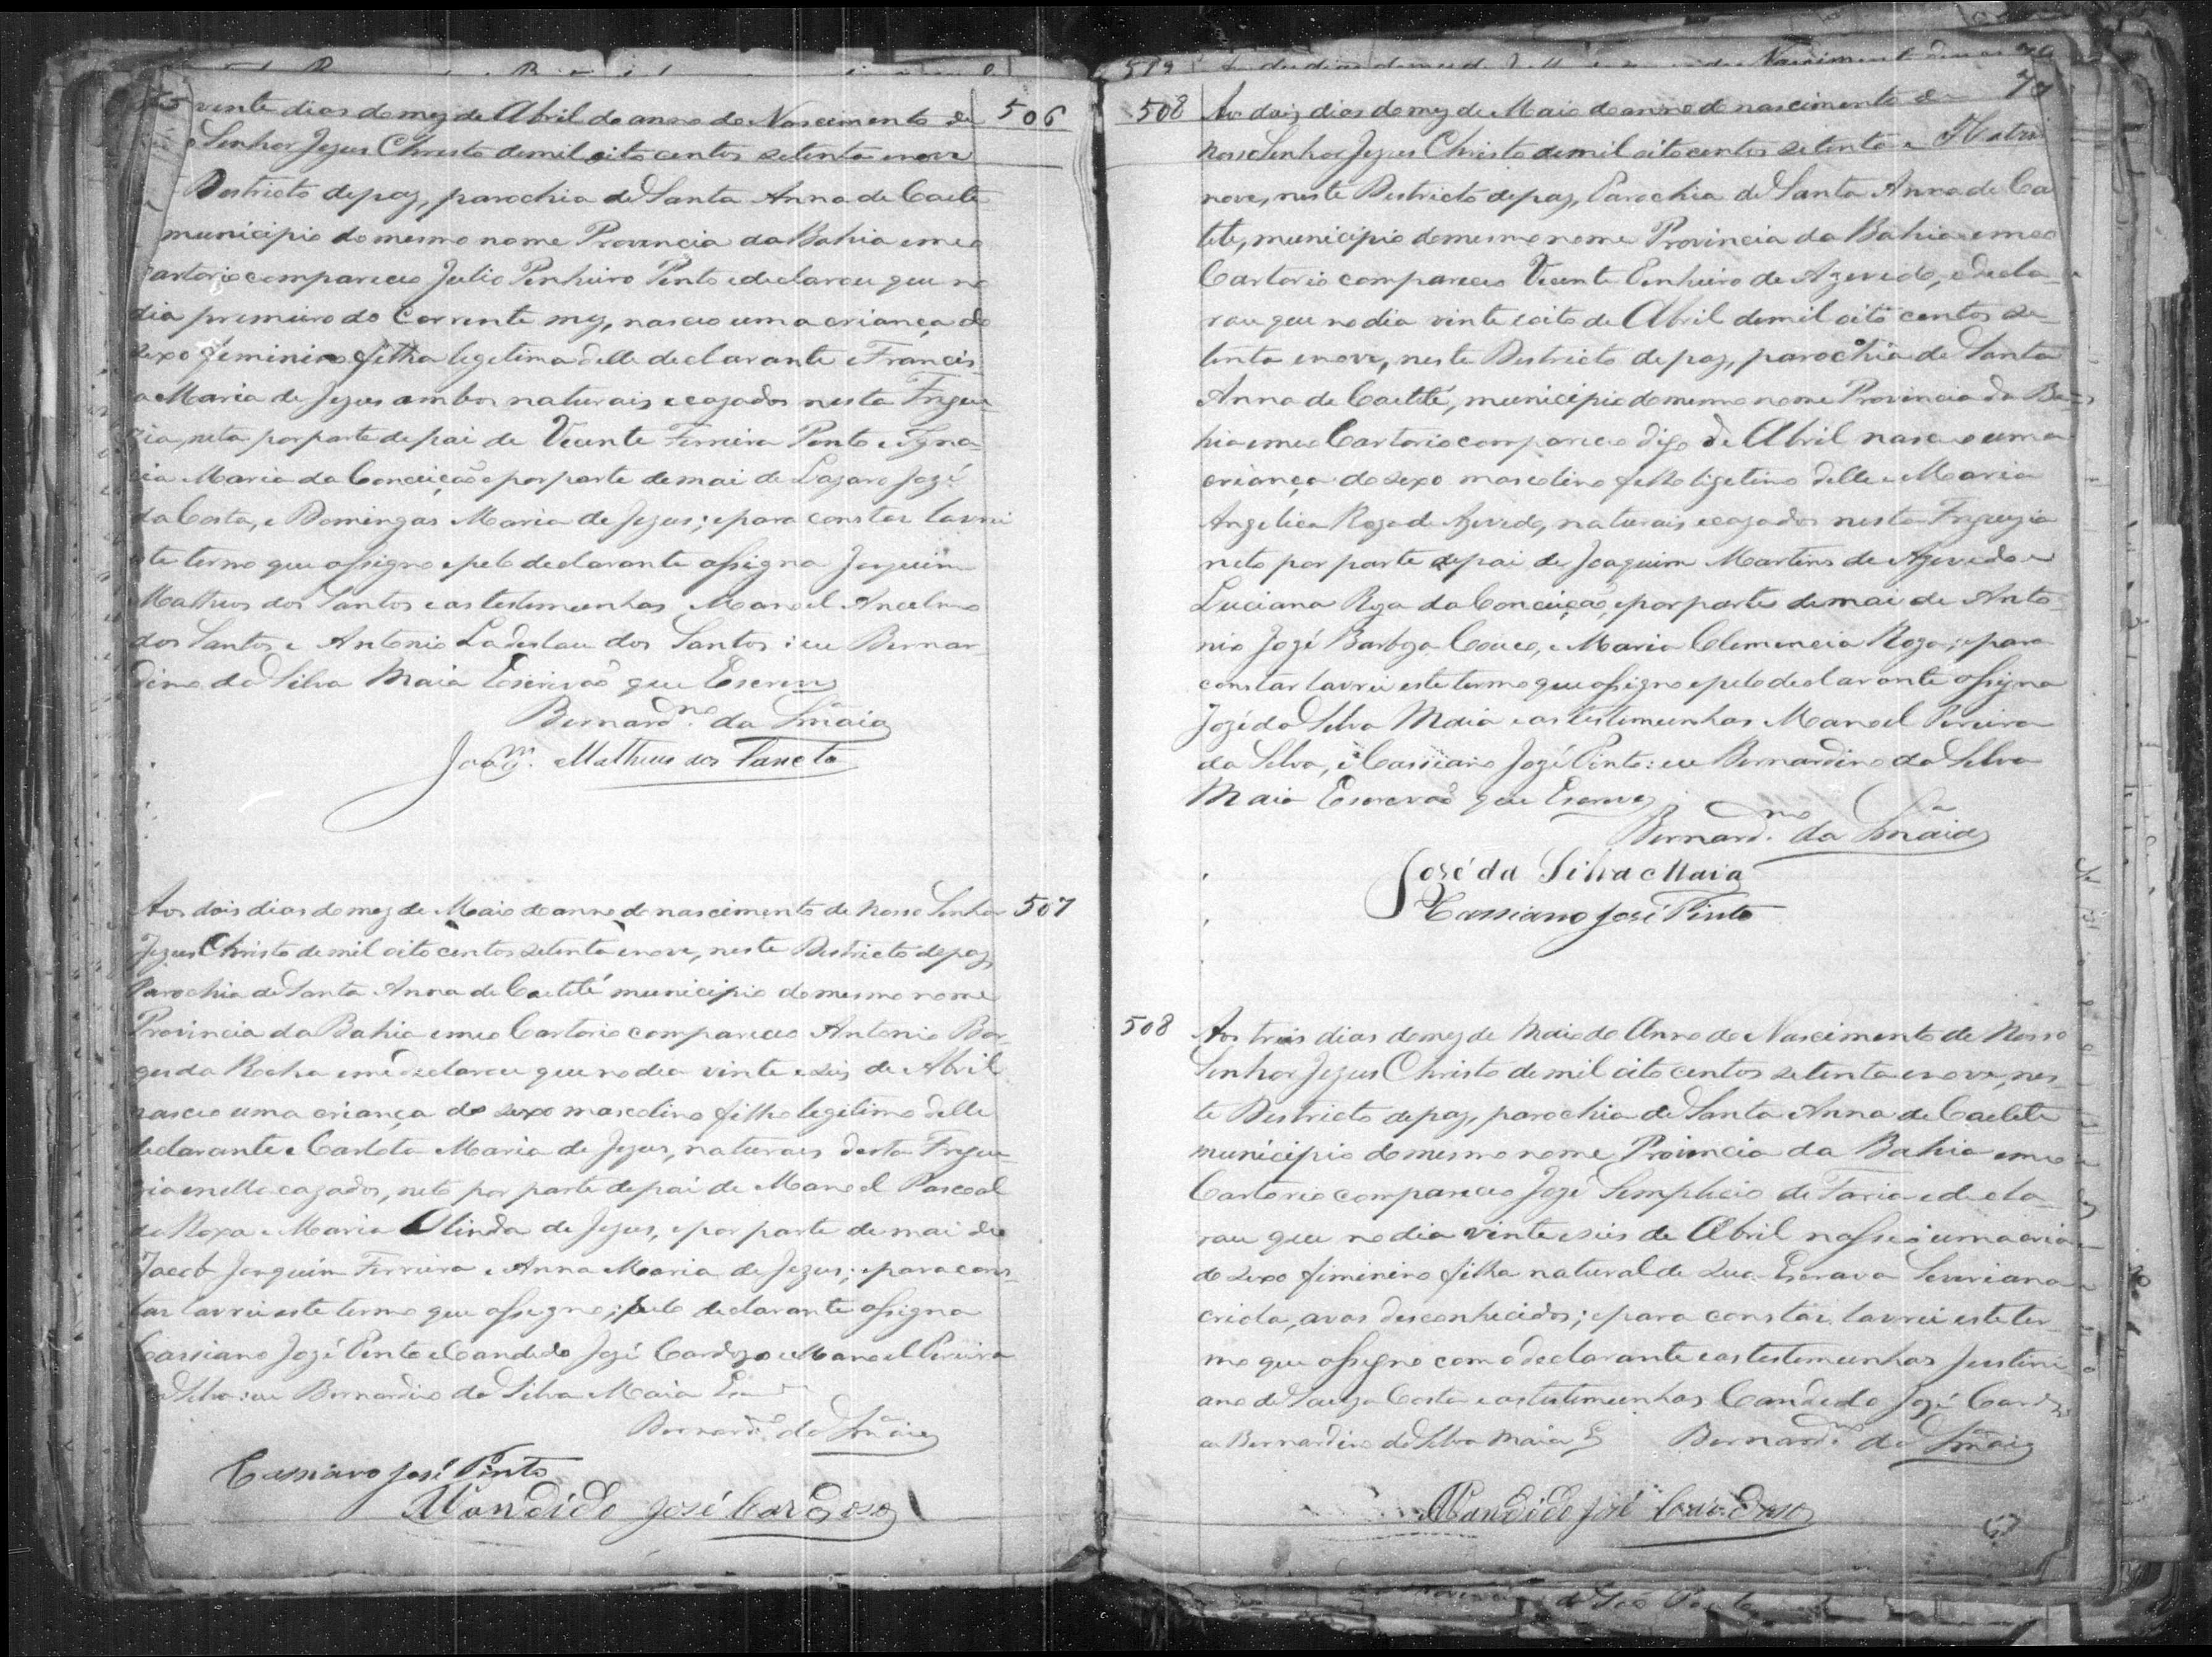 506
vinte dias do mez de Abril do anno do Nascimento de
Senhor Jezus Christo de mil oito centos setenta e nove
Destricto de paz, parochia de Santa Anna de Caete
municipio do mesmo nome Provencia da Bahia e meo
Cartorio compareceo Julio Pinheiro Pinto e declarou que no
dia premeiro do Corrente mez, nasceo uma criança do
sexo feminino filha legitima delle declarante e Francis
a Maria de Jezus ambos naturais e cazados nesta Fregue
zia, neta por parte de pai de Vicente Ferreira Pinto e Igna
cia Maria da Conceição e por parte de mai de Lazaro Jozé
da Costa, e Domingas Maria de Jezus; e para constar lavrei
te termo que assigno e pelo declarante assigna Joaquim
Matheos dos Santos e as testemunhas Manoel Ancelmo
dos Santos e Antonio Ladeslau dos Santos: eu Bernar
dino da Silva Maia Escrivaõ que Escrevy
Bernardno. da Sa. Maia
Joaqm. Matheus dos Sancto
507
Aos dois dias do mez de Maio do anno do nascimento de Nosso Senhor
Jezus Christo de mil oito centos setenta e nove, neste Destricto de paz,
Parochia de Santa Anna de Caetité municipio do mesmo nome
Provincia da Bahia e meo Cartorio compareceo Antonio Bor
ges da Rocha e me declarou que no dia vinte e seis de Abril
nasceo uma criança do sexo mascolino filho legitimo delle
declarante e Carlota Maria de Jezus, naturais desta Fregue
zia e nella cazados, neto por parte de pai de Manoel Pascoal
da Roxa e Maria Olinda de Jezus, e por parte de mai de
Jacob Joaquim Ferreira e Anna Maria de Jezus; e para cons
tar lavrei este termo que assigno; pelo declarante assigna
Cassiano Jozé Pinto e Candido Jozé Cardozo e Manoel Pereira
da Silva: eu Bernardino da Silva Maia
Bernardno. da Sa. Maia
Cassiano José Pinto
Candido José Cardoso
70
508
Aos dois dias do mez de Maio do anno do nascimento de
Nosso Senhor Jezus Christo de mil oito centos setenta e
nove, neste Destricto de paz, Parochia de Santa Anna de Cae
tete, municipio do mesmo nome Provincia da Bahia e meo
Cartorio compareceo Vicente Pinheiro de Azevedo, e decla
rou que no dia vinte e oito de Abril de mil oito centos se
tenta e nove, neste Destricto de paz, parochia de Santa
Anna de Caetité, municipio do mesmo nome Provincia da Ba
hia e meo Cartorio compareceo digo de Abril nasceo uma
criança do sexo mascolino filho ligetimo delle e Maria
Angelica Roza de Azevedo, naturais e cazados nesta Freguezia
neto por parte de pai de Joaquim Martins de Azevedo e
Luciana Roza da Conceição, e por parte de mai de Anto
nio Jozé Barboza Couco, e Maria Clemencia Roza; e para
constar lavrei este termo que assigno e pelo declarante assigna
Jozé da Silva Maia e as testemunhas Manoel Pereira
da Silva, e Cassiano Jozé Pinto: eu Bernardino da Silva
Maia Escrevaõ que Escrevy
Bernardno. da Sa. Maia
José da Silva Maia
Cassiano José Pinto
508
Aos treis dias do mez de Maio do Anno do Nascimento de Nosso
Senhor Jezus Christo de mil oito centos setenta e nove, nes
te Destricto de paz, parochia de Santa Anna de Caetete
municipio do mesmo nome Provincia da Bahia e meo
Cartorio compareceo Jozé Semplicio de Faria e decla
rou que no dia vinte e seis de Abril nasseo uma cria
do sexo fiminino filha natural de sua Escrava Severiana
criola, avos desconhecidos; e para constar lavrei este ter
mo que assigno com o declarante e as testemunhas Justini
ano de Souza Costa e as testemunhas Candido Jozé Cardz
eu Bernardino da Silva Maia E Bernardno. da Sa. Maia
Candido José Cardoso